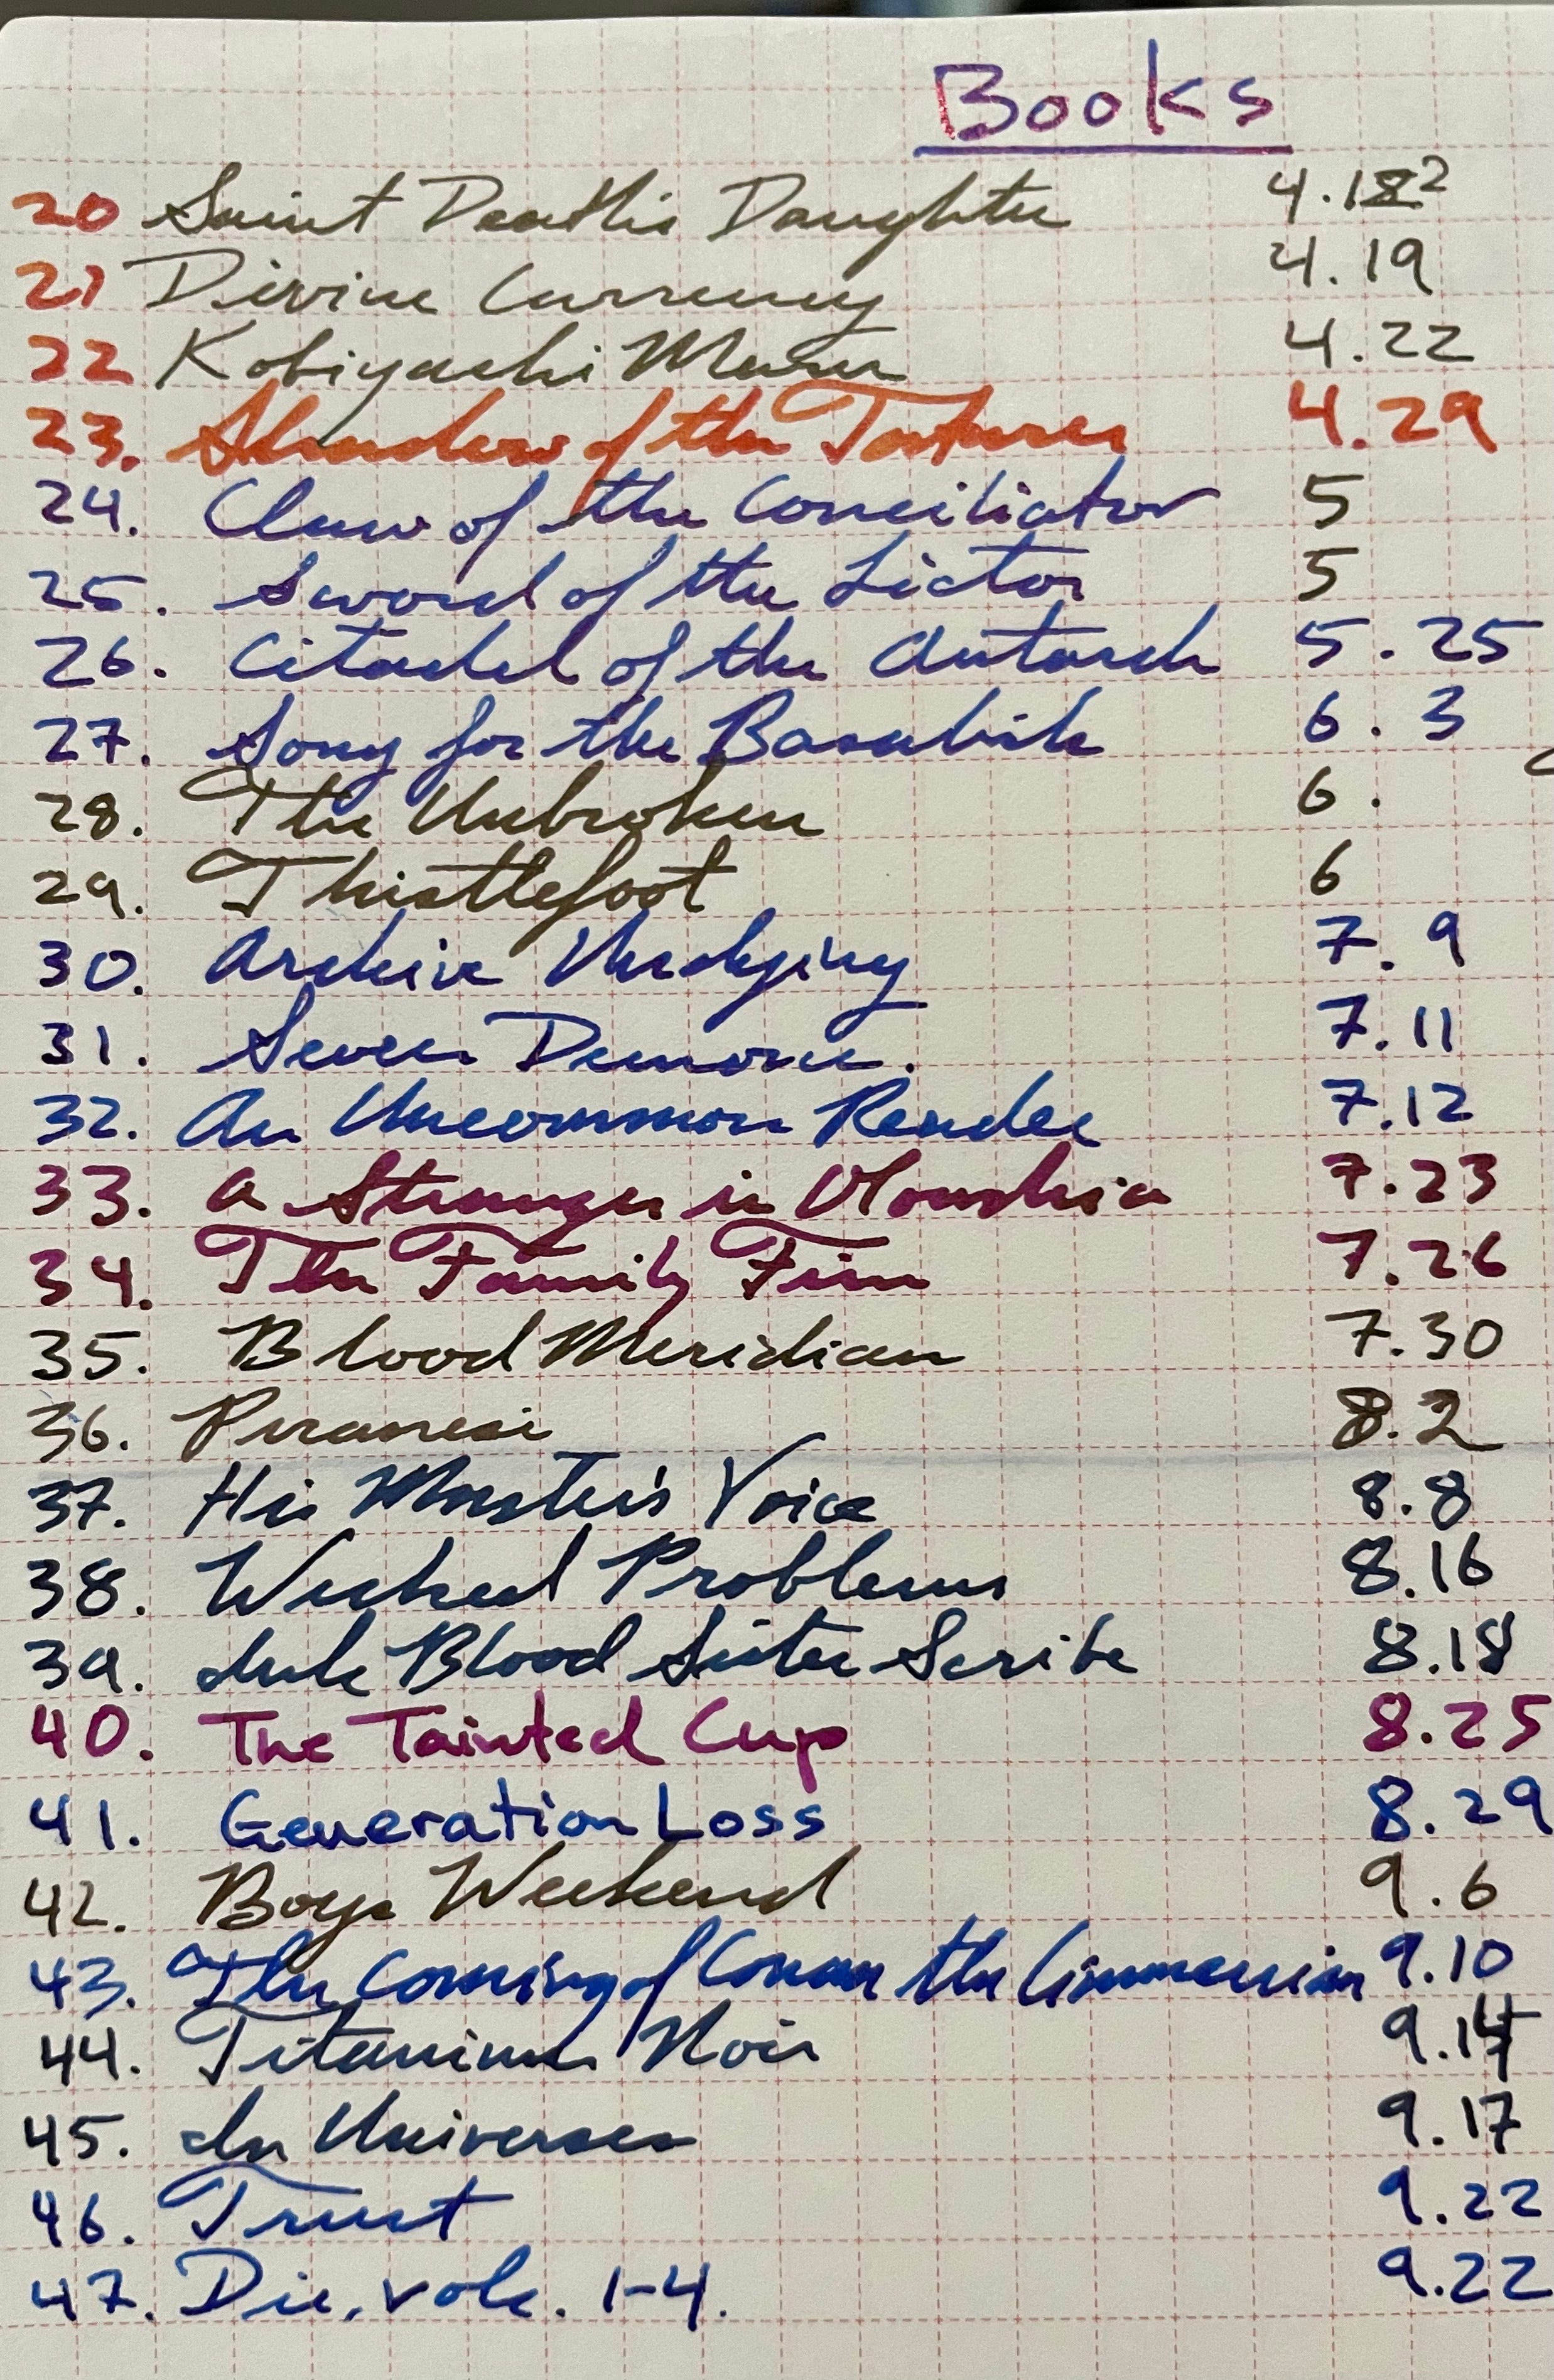 Books
20 Saint Death's Daughter 4.182
21 Divine Currency 4.19
22 Kobiyashi Maru 4.22
23. Shadow of the Torturer 4.29
24. Claw of the Conciliator 5
25. Sword of the Lictor 5
26. Citadel of the Autarch 5.25
27. Song for the Basilisk 6.3
28. The Unbroken 6.
29. Thistlefoot 6
30. Archive Undying 7.9
31. Seven Demons. 7.11
32. An Uncommon Reader 7.12
33. A Stranger in Olondria 7.23
34. The Family Firm 7.26
35. Blood Meridian 7.30
36. Piranesi 8.2
37. His Master's Voice 8.8
38. Wicked Problems 8.16
39. Ink Blood Sister Scribe 8.18
40. The Tainted Cup 8.25
41. Generation Loss 8.29
42. Boys Weekend 9.6
43. The Coming of Conan the Cimmerian 9.10
44. Titanium Noir 9.14
45. In Universes 9.17
46. Trust 9.22
47. Die, vols. 1-4. 9.22